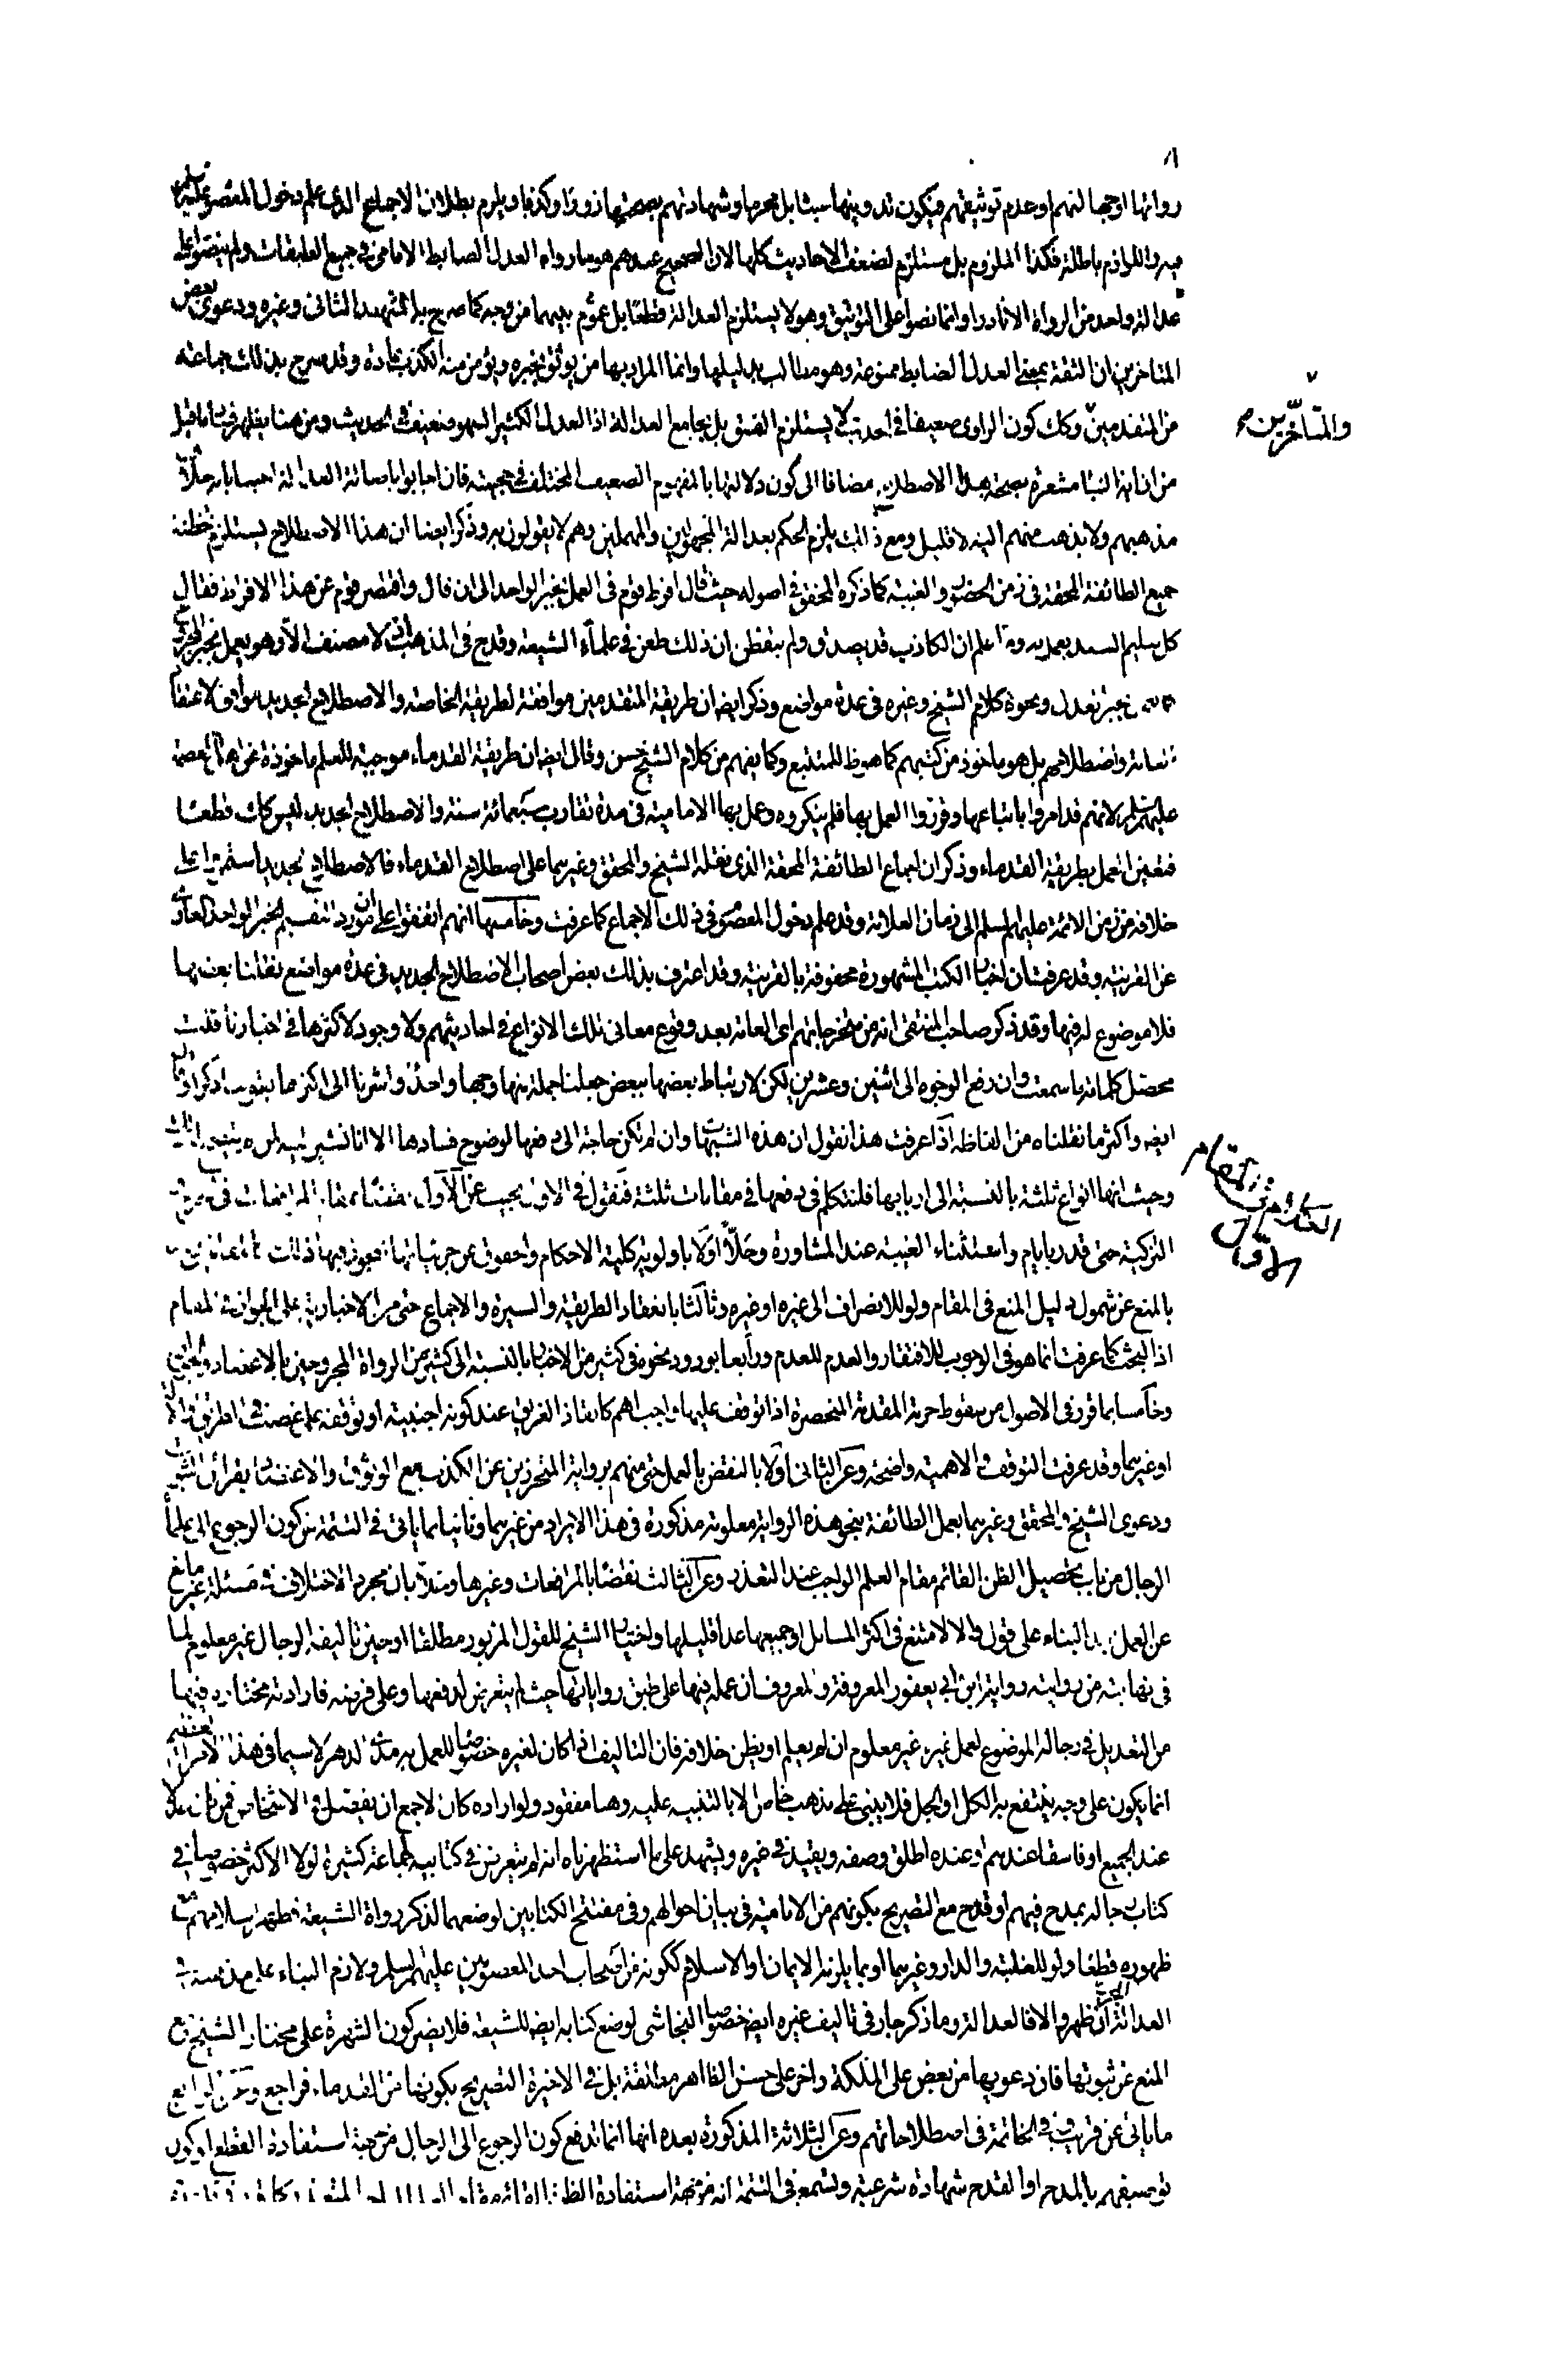 ٨
رواتها او جهالتهم او عدم توثيقهم فيكون تدوينها عبثا بل محرما وشهادتهم بصحتها زورا وكذبا ويلزم بطلان الاجماع الذى علم دخول المعصوم عليه السلم
فيه واللوازم باطلة فكذا الملزوم بل مستلزم لضعف الاحاديث كلها لان الصحيح عندهم هو ما رواه العدل الضابط الامامى فى جميع الطبقات ولم ينصوا على
عدالة واحد من الرواة الا نادرا وانما نصوا على التوثيق وهو لا يستلزم العدالة قطعا بل عموم بينهما من وجه كما صرح به الشهيد الثانى وغيره ودعوى بعض
المتاخرين ان الثقة بمعنى العدل الضابط ممنوعة وهو مطالب بدليلها وانما المراد بها من يوثق بخبره ويؤمن منه الكذب عادة وقد صرح بذلك جماعة
من المتقدمين وكك كون الراوى ضعيفا فى الحديث لا يستلزم الفسق بل يجامع العدالة اذ العدل الكثير السهو ضعيف فى الحديث ومن هنا يظهر فساد ما قيل
والمتأخرين صح
من ان اية النبأ مشعرة بصحة هذا الاصطلاح مضافا الى كون دلالتها بالمفهوم الضعيف المختلف فى حجيته فان اجابوا باصالة العدالة اجبنا بانه خلاف
مذهبهم ولا يذهب منهم اليه الا قليل ومع ذلك يلزم الحكم بعدالة المجهولين والمهملين وهم لا يقولون به وذكر ايضا ان هذا الاصطلاح يستلزم تخطئة
جميع الطائفة المحقة فى زمن الحضور والغيبة كما ذكره المحقق فى اصوله حيث قال افرط قوم فى العمل بخبر الواحد الى ان قال واقتصر قوم عن هذا الافراط فقال
كل سليم السند يعمل به وما علم ان الكاذب قد يصدق ولم يتفطن ان ذلك طعن فى علماء الشيعة وقدح فى المذهب اذ لا مصنف الا وهو يعمل بخبر المجروح
كما يعمل بخبر العدل ونحوه كلام الشيخ وغيره فى عدة مواضع وذكر ايضا ان طريقة المتقدمين موافقة لطريقة الخاصة والاصطلاح الجديد موافق لاعتقاد
العامة واصطلاحهم بل هو ماخوذ من كتبهم كما هو ظ للمتتبع وكما يفهم من كلام الشيخ حسن وقال ايضا ان طريقة القدماء موجبة للعلم ماخوذة عن اهل العصمة
عليهم السلم لانهم قد امروا باتباعها وقرروا العمل بها فلم ينكروه وعمل بها الامامية فى مدة تقارب سبعمائة سنة والاصطلاح الجديد ليس كك قطعا
فتعين العمل بطريقة القدماء وذكر ان اجماع الطائفة المحقة الذى نقله الشيخ والمحقق وغيرهما على اصطلاح القدماء فالاصطلاح الجديد استمر على
خلافه من زمن الائمة عليهم السلم الى زمان العلامة وقد علم دخول المعصوم فى ذلك الاجماع كما عرفت وخامسها انهم اتفقوا على ان مورد التقسيم الخبر الواحد العارى
عن القرينة وقد عرفت ان اخبار الكتب المشهورة محفوفة بالقرينة وقد اعترف بذلك بعض اصحاب الاصطلاح الجديد فى عدة مواضع نقلنا بعضها
فلا موضوع له فيها وقد ذكر صاحب المنتقى انه من مخرجاتهم اى العامة بعد وقوع معانى تلك الانواع فى احاديثهم ولا وجود لاكثرها فى اخبارنا قلت
محصل كلماته ما سمعت وان رفع الوجوه الى اثنين وعشرين لكن لارتباط بعضها ببعض جعلنا جملة منها وجها واحدا واشرنا الى اكثر ما
ايضا واكثر ما نقلناه من الفاظه اذا عرفت هذا نقول ان هذه الشبهات وان لم تكن حاجة الى دفعها لوضوح فسادها الا انا نشير
وحيث انها انواع ثلثة بالنسبة الى اربابها فلنتكلم فى دفعها فى مقامات ثلثة فنقول فى الاول يجيب عن الاول نقضا بمقام المرافعات فى
المقام
الاول
التزكية حتى قدر بايام واستثناء الغيبة عند المشاورة وحلا اولا باولوية كلية الاحكام والحقوق عن جزئياتها فيجوز فيها ذلك
بالمنع عن شمول دليل المنع فى المقام ولو للانصراف الى غيره او غيره وثالثا بانعقاد الطريقة والسيرة والاجماع حتى من الاخبارية على الجواز فى المقام
اذ البحث كما عرفت انما هو فى الوجوب للافتقار والعدم للعدم ورابعا بورود نحوه فى كثير من الاخبار بالنسبة الى كثير من الرواة المجروحين بالاعتقاد
وخامسا بما قرر فى الاصول من سقوط حرمة المقدمة المنحصرة اذا توقف عليها واجب اهم كانقاذ الغريق عند كونه اجنبية او توقفه على غصب
او غيرهما وقد عرفت التوقف والاهمية واضحة وعن الثانى اولا بالنقض بالعمل حتى منهم برواية المتحرزين عن الكذب مع الوثوق والاعتضاد بقرائن
ودعوى الشيخ والمحقق وغيرهما بعمل الطائفة بنحو هذه الرواية معلومة مذكورة فى هذا الايراد من غيرهما وثانيا بما ياتى فى التتمة من كون الرجوع الى علماء
الرجال من باب تحصيل الظن القائم مقام العلم الواجب عند التعذر وعن الثالث نقضا بالمرافعات وغيرها وحلا بان مجرد الاختلاف فى مسئلة غير مانع
عن العمل بعد البناء على قول والا لامتنع فى اكثر المسائل او جميعها عدا قليلها واختيار الشيخ للقول المزبور مطلقا او حين تاليفه الرجال غير معلوم لما
فى نهايته من روايته رواية ابن ابى يعفور المعروفة والمعروف ان عمله فيها على طبق رواياتها حيث لم يتعرض لدفعها وعلى فرضه فارادته مختاره فيها
من التعديل فى رجاله الموضوع لعمل غيره غير معلوم ان لم يعلم او يظن خلافه فان التاليف اذا كان لغيره خصوصا للعمل به مدى الدهر لا سيما فى هذا الامر العظيم
انما يكون على وجه ينتفع به الكل او الجل فلا يبنى على مذهب خاص الا بالتنبيه عليه وهما مفقود ولو اراده كان لاجمع ان يفصل فى الاشخاص فمن كان عدلا
عند الجميع او فاسقا عندهم او عنده اطلق وصفه ويقيد فى غيره ويشهد على ما استظهرناه انه لم يتعرض فى كتابيه لجماعة كثيرة لولا الاكثر خصوصا فى
كتاب رجاله بمدح فيهم او قدح مع التصريح بكونهم من الامامية فى بيان احوالهم وفى مفتتح الكتابين لوضعهما لذكر رواة الشيعة
ظهوره قطعا ولو للغلبة والدار وغيرهما او بما يلزمه الايمان او الاسلام ككونه من اصحاب احد المعصومين عليهم السلم ولازم البناء على مذهبه فى
العدالة ان ظهر والا فالعدالة وما ذكر جار فى تاليف غيره ايضا خصوصا النجاشى لوضع كتابه ايضا للشيعة فلا يضر كون الشهرة على مختار الشيخ مع
المنع عن ثبوتها فان دعويها من بعض على الملكة واخر على حسن الظاهر متفقة بل فى الاخيرة التصريح بكونها من القدماء فراجع وعن الرابع
ما ياتى عن قريب فى الخاتمة فى اصطلاحاتهم وعن الثلاثة المذكورة بعده انها انما تدفع كون الرجوع الى الرجال من جهة استفادة القطع او كون
توصيفهم بالمدح او القدح شهادة شرعية وتسمع فى التتمة انه من جهة استفادة الظن